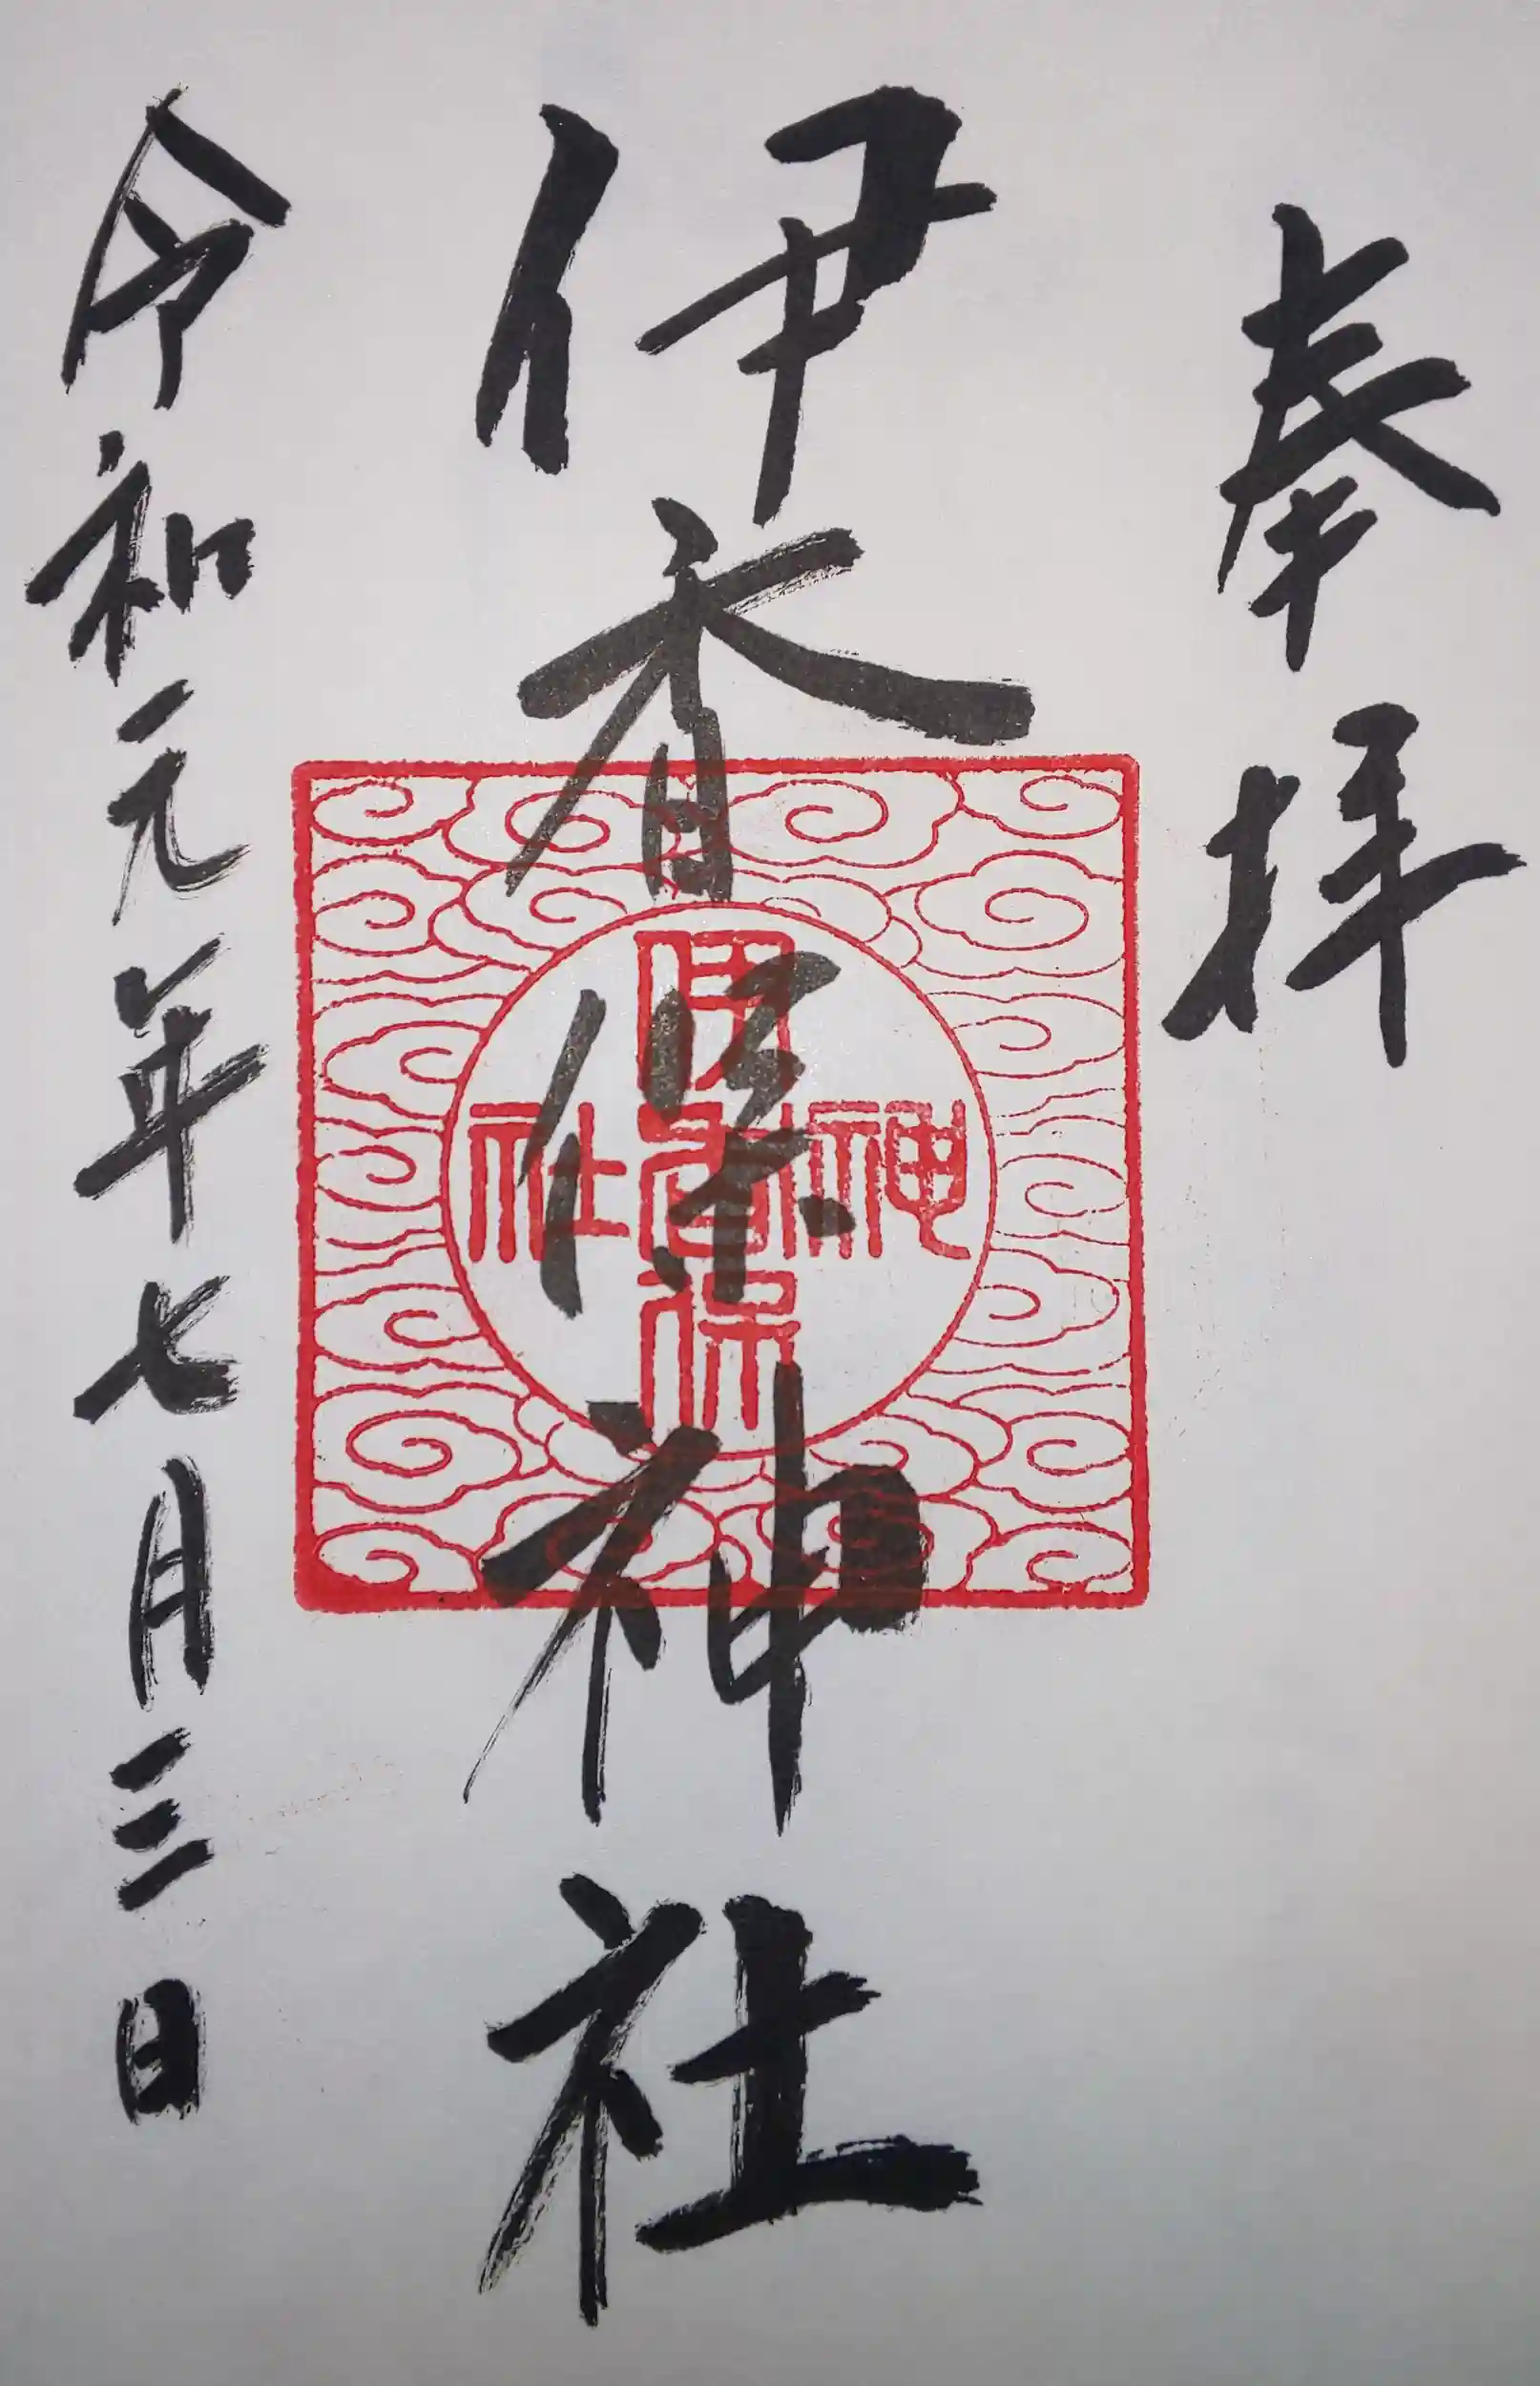 奉拝
伊香保神社
令和元年七月三日
香保
神社